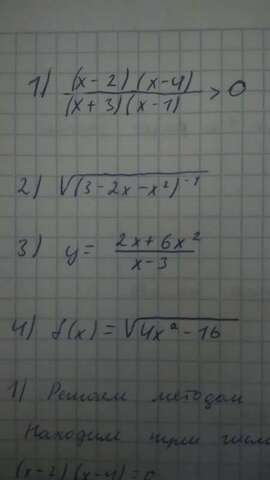 1) (x-2)(x-4) / (x+3)(x-1) > 0
2) √(3-2x-x²)⁻¹
3) y = 2x+6x² / x-3
4) f(x) = √4x² - 16
1) Решаем методом
Находим при
(x-2)(x-4)=0